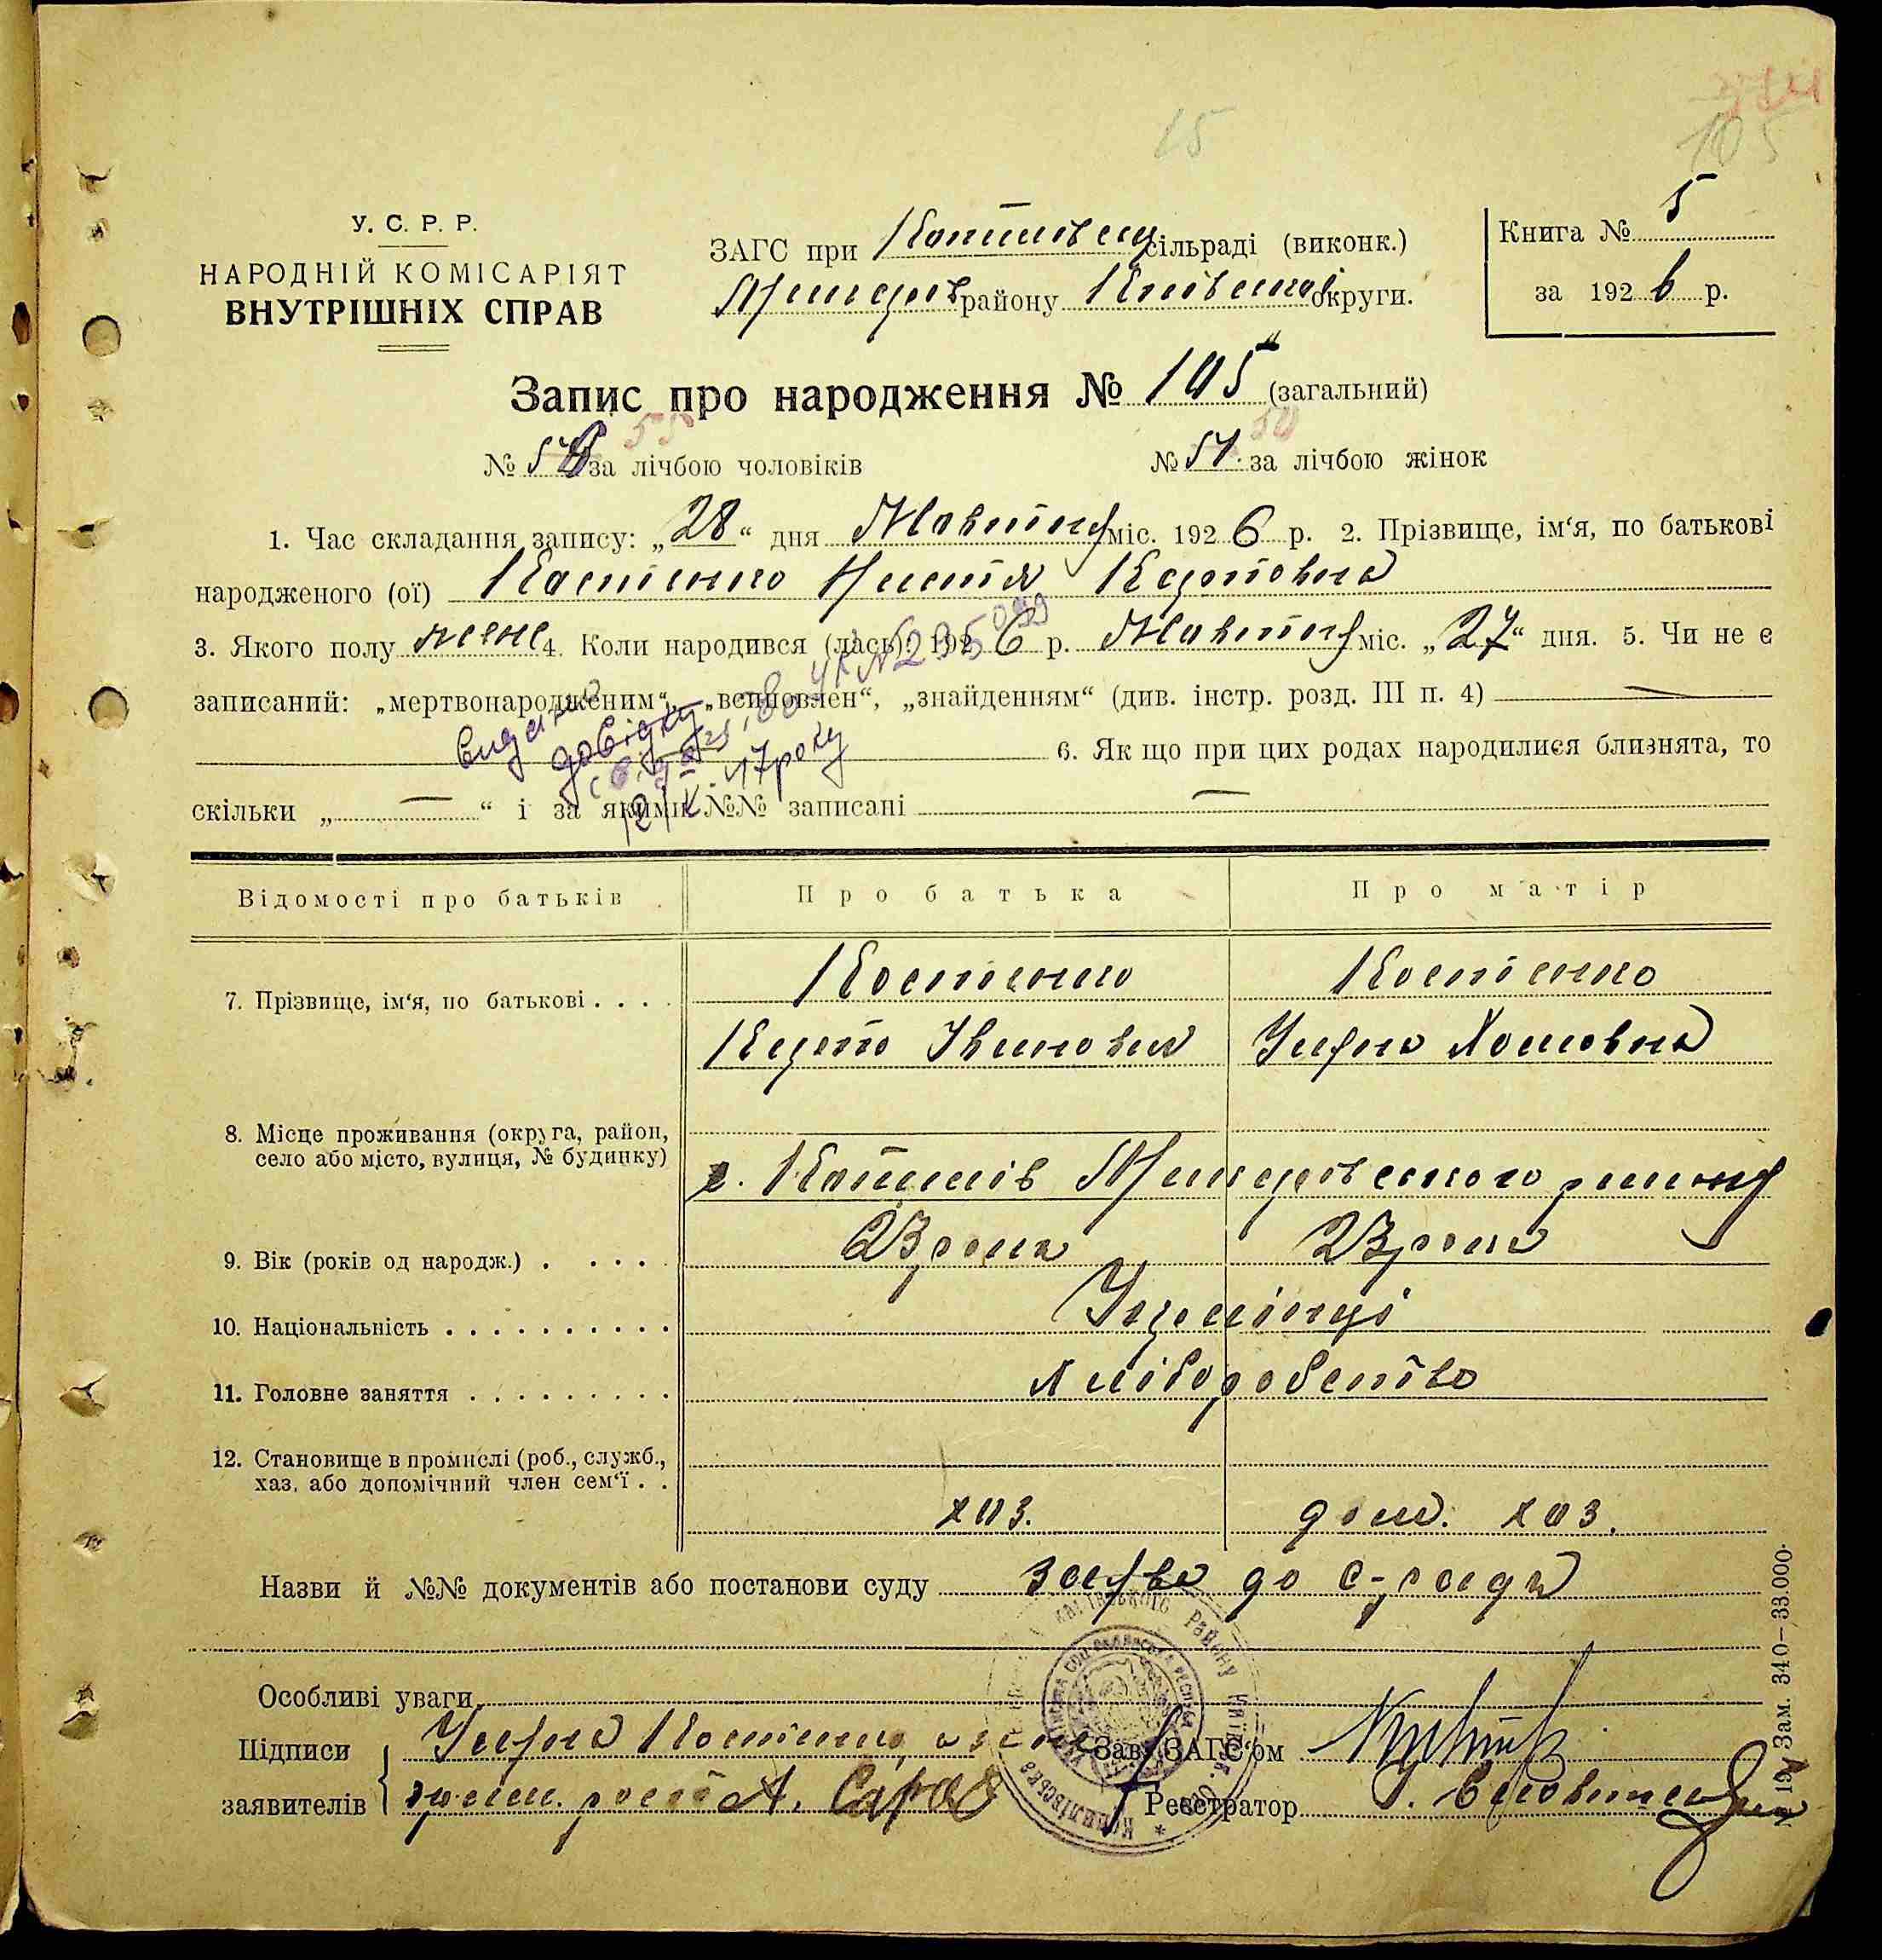 15
105
У. С. Р. Р.
НАРОДНІЙ КОМІСАРІЯТ
ВНУТРІШНІХ СПРАВ
ЗАГС при Копилівськ сільраді (виконк.)
району Київської округи.
Книга № 5
за 1926 р.
Запис про народження № 105 (загальний)
№ за лічбою чоловіків 55
№ 51 за лічбою жінок 50
1. Час складання запису: „28“ дня Жовтня міс. 1926 р. 2. Прізвище, ім‘я, по батькові
народженого (ої) Костенко Настя Карповна
3. Якого полу жіно 4. Коли народився (лась): 1926 р. Жовтня міс. „27“ дня. 5. Чи не є
записаний: „мертвонародженим“, „всиновлен“, „знайденням“ (див. інстр. розд. III п. 4) —
6. Як що при цих родах народилися близнята, то
скільки „ — “ і за якими №№ записані —
видано
довідку
47 року
Відомості про батьків
Про батька
Про матір
7. Прізвище, ім‘я, по батькові . . . .
Костенко
Костенко
Карпо Іванович
Хомовна
8. Місце проживання (округа, район,
село або місто, вулиця, № будинку)
с. Копилів району
9. Вік (років од народж.) . . . .
23 роки
23 роки
10. Національність . . . . . . . . . .
Українці
11. Головне заняття . . . . . . . . .
Хліборобство
12. Становище в промислі (роб., служб.,
хаз. або допомічний член сем‘ї . .
хоз.
дом. хоз.
Назви й №№ документів або постанови суду заява до с-ради
Особливі уваги
Підписи
заявителів
Костенко
Зав. ЗАГС‘ом
Реєстратор
Зам. 340—33.000.